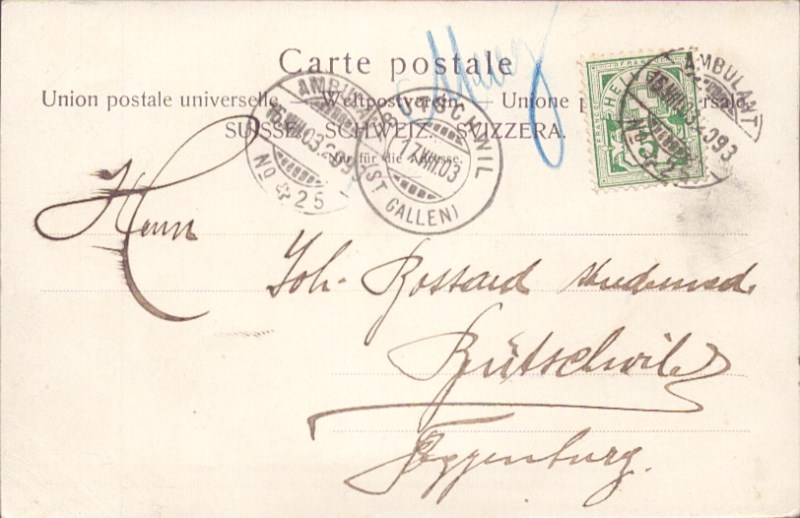 Carte postale
Union postale universelle. — Weltpostverein. — Unione postale universale.
SUISSE. SCHWEIZ. SVIZZERA.
Nur für die Adresse.
AMBULANT
16.VIII.03.
No 25
BÜTSCHWIL
17.VIII.03
(ST GALLEN)
HELVETIA
FRANCO
5
AMBULANT
16.VIII.03.
No 25
Herrn
Joh. Bossard
Bütschwil
Toggenburg.